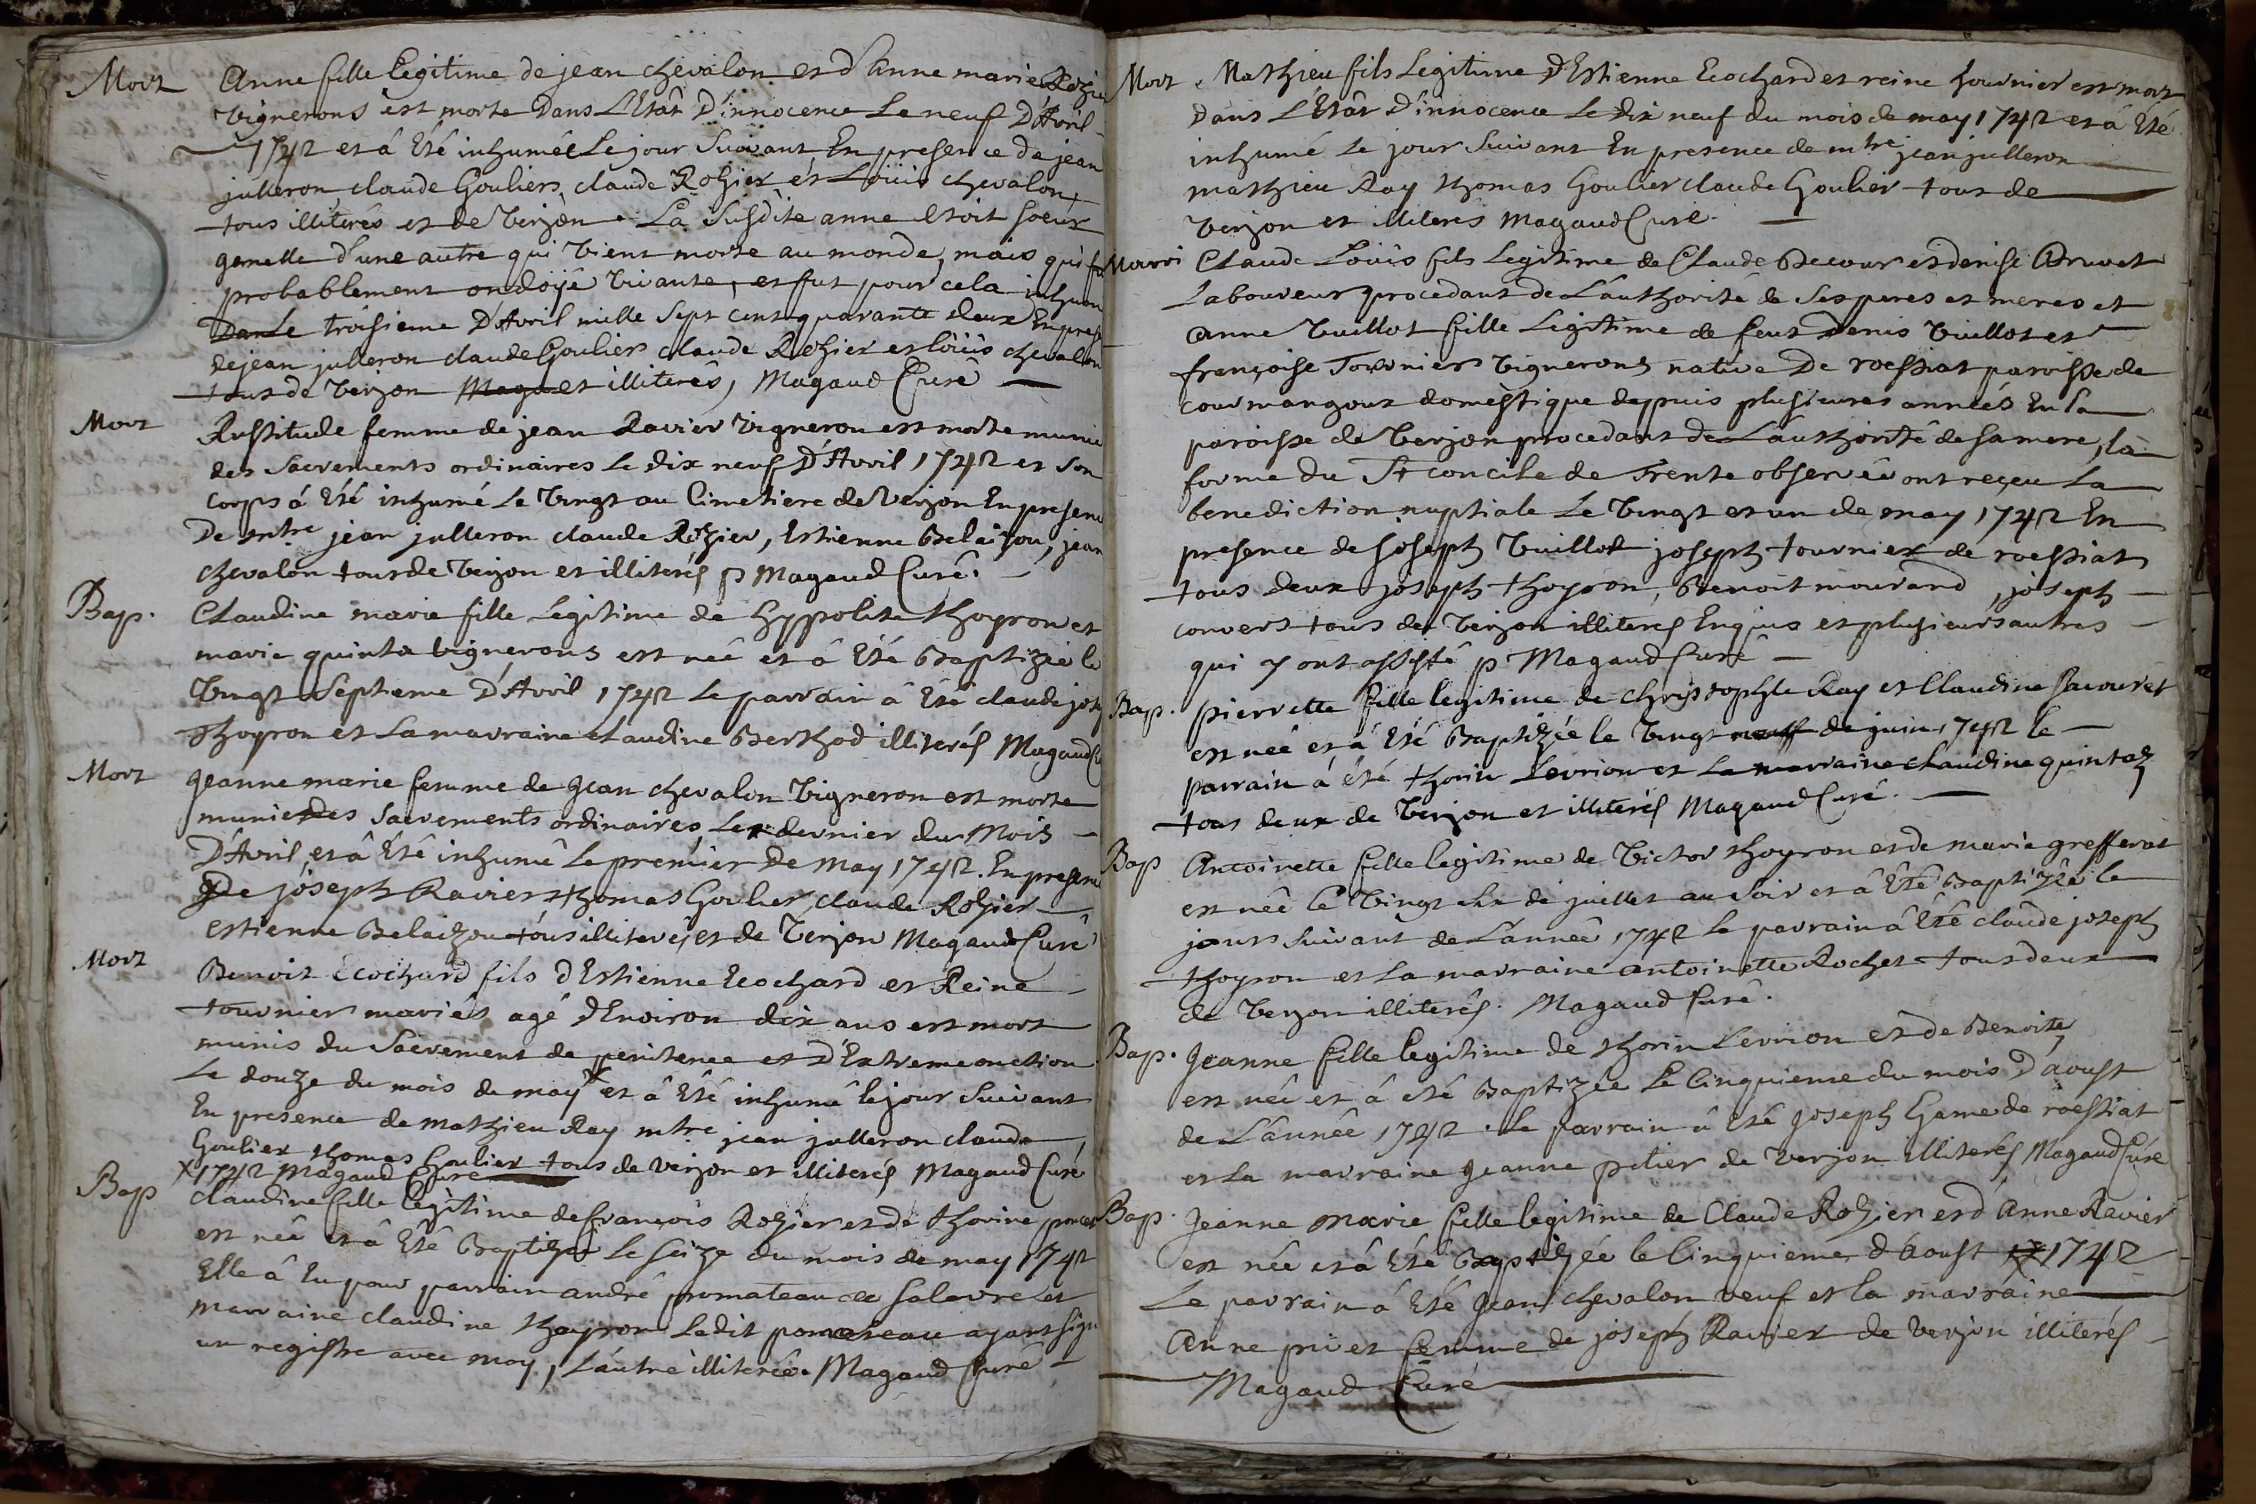 Mort Anne fille legitime de jean chevalon et d'anne marie Rozier
vignerons est morte Dans L'Etât D'innocence Le neuf D'Avril
1742 et â Eté inhumêe Le jour Suivant En presence de jean
julleron claude Gouliers, claude Rozier et Loüis chevalon
tous illiterés et de Verjon. La Susdite anne etoit soeur
gemelle d'une autre qui vient morte au monde, mais qui fut
probablement ondoÿée vivante, et fut pour cela inhum
Dans Le troisieme D'Avril mille Sept cent quarante deux En prese
de jean julleron claude Gouliers claude Rozier et loüis chevalon
tous de verjon Maga et illiterês, Magaud Curé
Mort Rustitude femme de jean Ravier vigneron est morte munie
des Sacrements ordinaires Le dix neuf D'Avril 1742 et son
corps á Eté inhumé Le vingt au Cimetiere de Verjon En presence
De mtre jean julleron claude Rozier, Estienne Belaizou, jean
chevalon tous de verjon et illiterés p Magaud Curé.
Bap. Claudine marie fille Legitime de hyppolite thoyron et
marie quinta vignerons est née et â Eté Baptizée le
vingt Septieme D'Avril 1742 Le parrain â Eté claude jose
thoyron et La marraine claudine Berthod illiterés Magaud C
Mort jeanne marie femme de jean chevalon vigneron est morte
munie des Sacrements ordinaires, Le dernier du Mois
D'Avril et â Eté inhumé Le premier De may 1742. En presence
de joseph Ravier thomas Goulier claude Rozier
estienne Belaizou tous illiterés et de Verjon Magaud Curé
Mort Benoit Ecochard fils d'Estienne Ecochard et Reine
tournier mariés agé d'Environ dix ans est mort
munis du Sacrement de penitence et d'Extreme onction
Le douze du mois de may X et â Eté inhumé le jour Suivant
En presence de mathieu Ray mtre jean julleron claude
Goulier thomas Goulier tous de verjon et illiterés Magaud Curé
X 1742 Magaud Curé
Bap claudine fille legitime de françois Rozier et de thorine poncet
est née et â Eté Baptizée Le Seize du mois de may 1742
Elle â Eu pour parrain andré promateau de Salavre et
marraine claudine thoyron Ledit pomateau ayant sign
un registre avec moy, L'autre illiterée. Magaud Curé
Mort Mathieu fils Legitime D'Estienne Ecochard et reine tournier est mort
Dans L'Etât D'innocence Le dix neuf du mois de may 1742 et â Eté
inhumé Le jour Suivant En presence de mtre jean julleron
mathieu Ray thomas Goulier claude Goulier tous de
Verjon et illiterés Magaud Curé.
Marri Claude Loüis fils Legitime de Claude Decour et denise Druet
Laboureur procedant de L'authorité de Ses peres et meres et
anne Vuillot fille Legitime de feut Denis Vuillot et
françoise Tournier vignerons native De roessiat paroisse de
courmangoux domestique depuis plusieures années En La
paroisse de Verjon procedant de L'authorité de sa mere, la
forme du St concile de Trente observée ont reçeu La
benediction nuptiale Le vingt et un de may 1742 En
presence de joseph Vuillot joseph tournier de roessiat
tous deux joseph thoyron, Benoit mourand, joseph
convers tous de Verjon illiterés Enquis et plusieurs autres
qui y ont assisté p Magaud Curé
Bap. pierrette fille legitime de christophle Ray et Claudine Pacouret
est née et á Eté Baptizée le vingt neuff de juin 1742 le
parrain á été thorin Levrion et La marraine claudine quintaz
tous deux de Verjon et illiterés Magaud Curé.
Bap Antoinette fille legitime de Victor thoyron et de marie grefferat
est née le vingt Six de juillet au Soir et â Eté Baptizée le
jours Suivant de L'année 1742 Le parrain â Eté claude joseph
thoyron et La marraine antoinette Rochet tous deux
de Verjon illiterés. Magaud Curé.
Bap. Jeanne fille legitime de thorin Levrion et de Benoite
est née et â eté Baptizée Le Cinquieme du mois D'aoust
de L'année 1742. Le parrain â Eté Joseph Game de roessiat
et La marraine jeanne petier de verjon illiterés Magaud Curé
Bap. Jeanne Marie fille legitime de Claude Rozier et d'Anne Ravier
est née et â Eté Baptizée le Cinquieme d'aoust 17 1742
Le parrain â Eté Jean chevalon veuf et la marraine
Anne privet femme de joseph Ravier de verjon illiterés
Magaud Curé